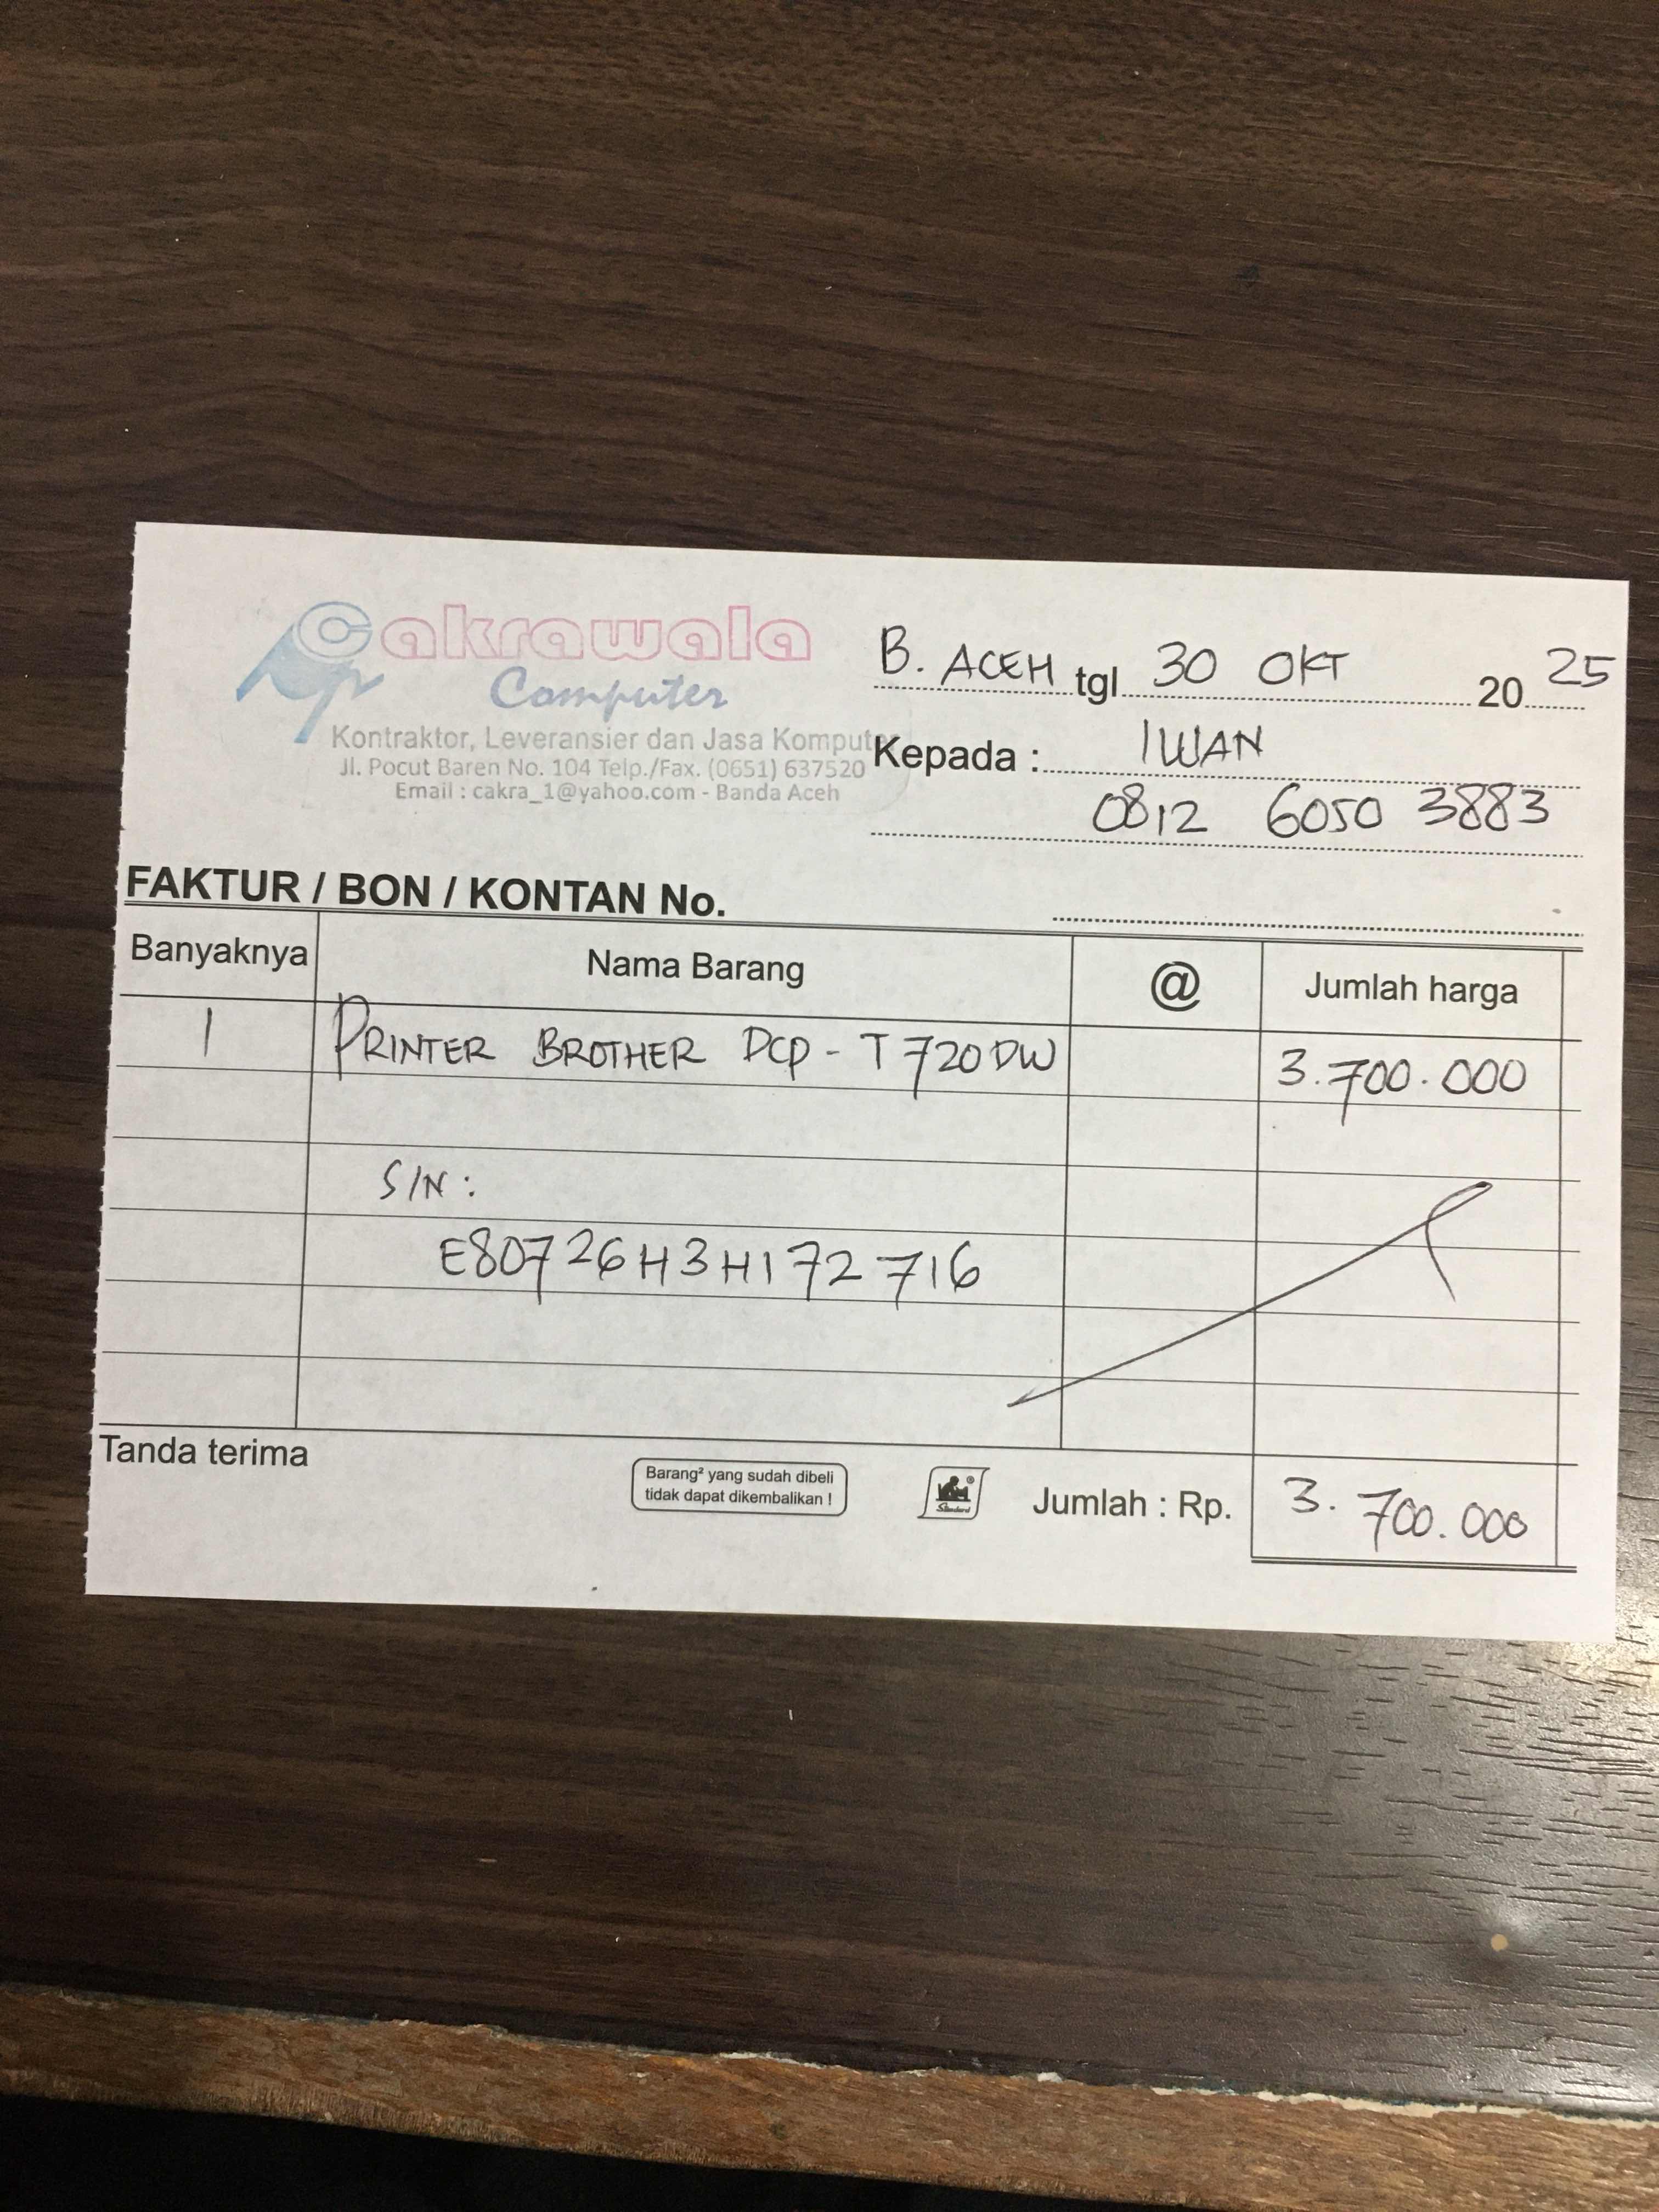 Cakrawala
Computer
Kontraktor, Leveransier dan Jasa Komputer
Jl. Pocut Baren No. 104 Telp./Fax. (0651) 637520
Email : cakra_1@yahoo.com - Banda Aceh
B. ACEH tgl 30 OKT 2025
Kepada : IWAN
0812 6050 3883
FAKTUR / BON / KONTAN No.
Banyaknya Nama Barang @ Jumlah harga
1 PRINTER BROTHER DCP - T720DW 3.700.000
S/N :
E80726H3H172716
Tanda terima
Barang² yang sudah dibeli
tidak dapat dikembalikan !
Standard
Jumlah : Rp. 3.700.000